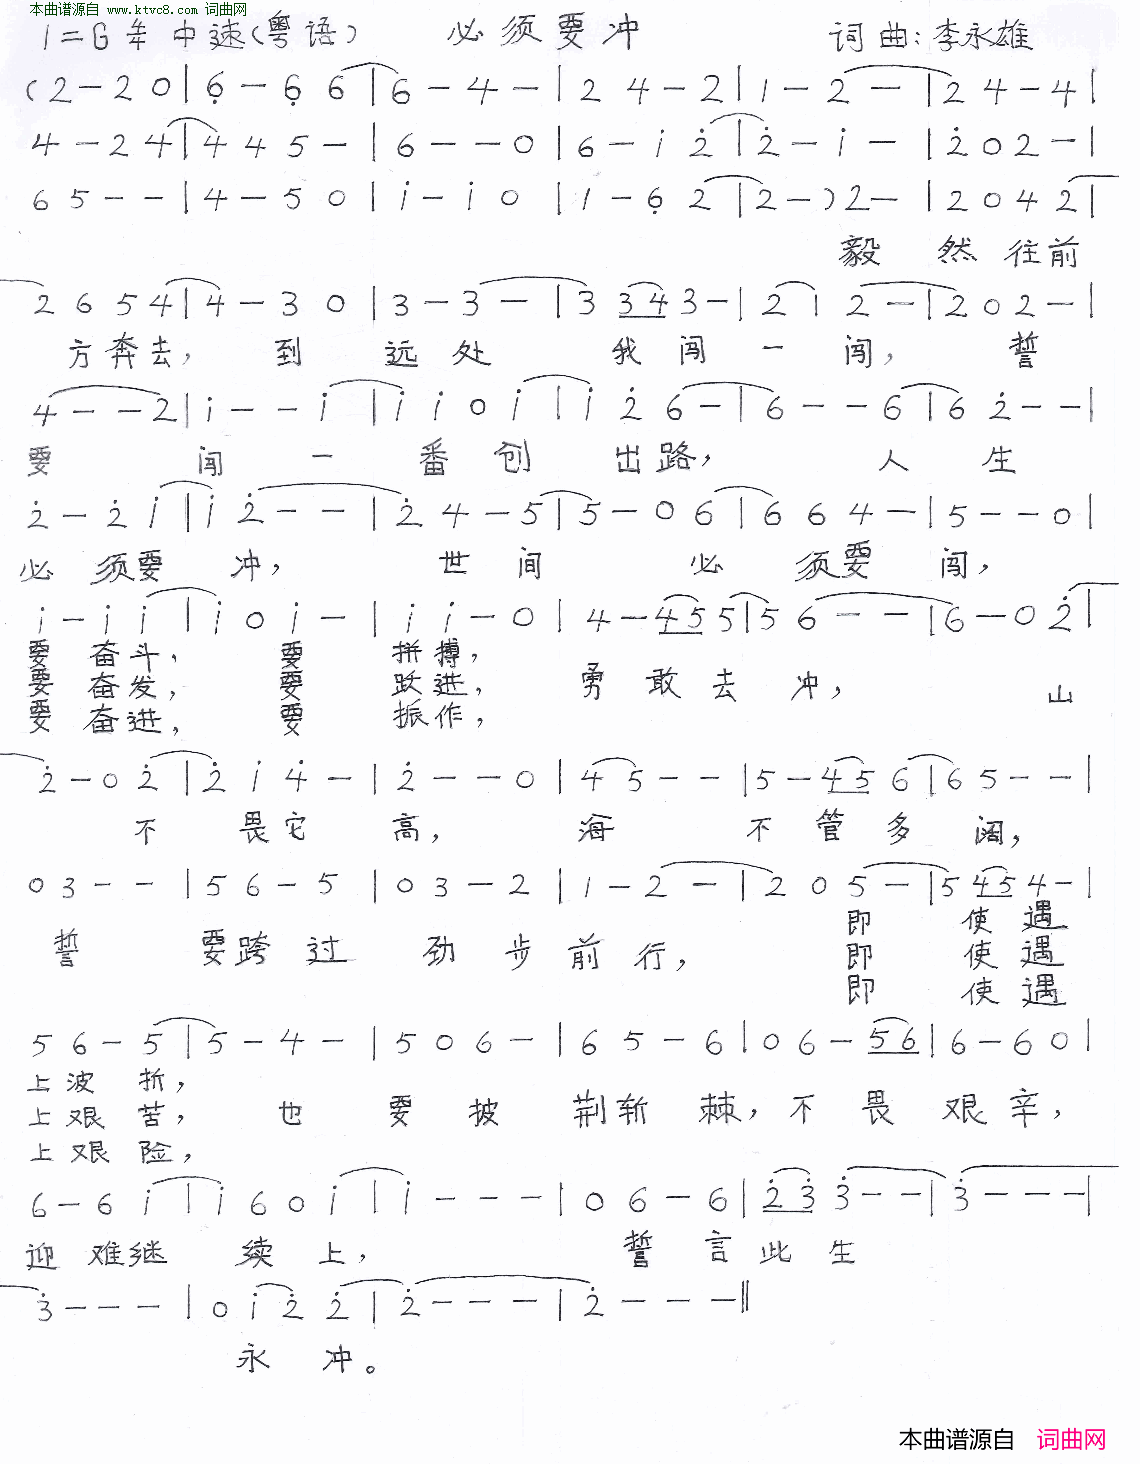 本曲谱源自 www.ktvc8.com 词曲网
1=G 4/4 中速(粤语) 必须要冲 词曲:李永雄
(2-20|6̣-6̣6|6-4-|24-2|1-2-|24-4|
4-24|445-|6--0|6-i2̇|2̇-i-|2̇02-|
65--|4-50|i-i0|1-6̣2|2-)2-|2042|
毅然往前
2654|4-30|3-3-|3343-|212-|202-|
方奔去,到远处我闯一闯,誓
4--2|i--i|ii0i|i2̇6-|6--6|62̇--|
要闯一番创出路,人生
2̇-2̇i|i2̇--|2̇4-5|5-06|664-|5--0|
必须要冲,世间必须要闯,
i-ii|i0i-|ii-0|4-455|56--|6-02̇|
要奋斗,要拼搏,
要奋发,要跃进,勇敢去冲,山
要奋进,要振作,
2̇-02̇|2̇i4̇-|2̇--0|45--|5-456|65--|
不畏它高,海不管多阔,
03--|56-5|03-2|1-2-|205-|5454-|
即使遇
誓要跨过劲步前行,即使遇
即使遇
56-5|5-4-|506-|65-6|06-56|6-60|
上波折,
上艰苦,也要披荆斩棘,不畏艰辛,
上艰险,
6-6i|i60i|i---|06-6|2̇3̇3̇--|3̇---|
迎难继续上,誓言此生
3̇---|0i2̇2̇|2̇---|2̇---||
永冲。
本曲谱源自 词曲网